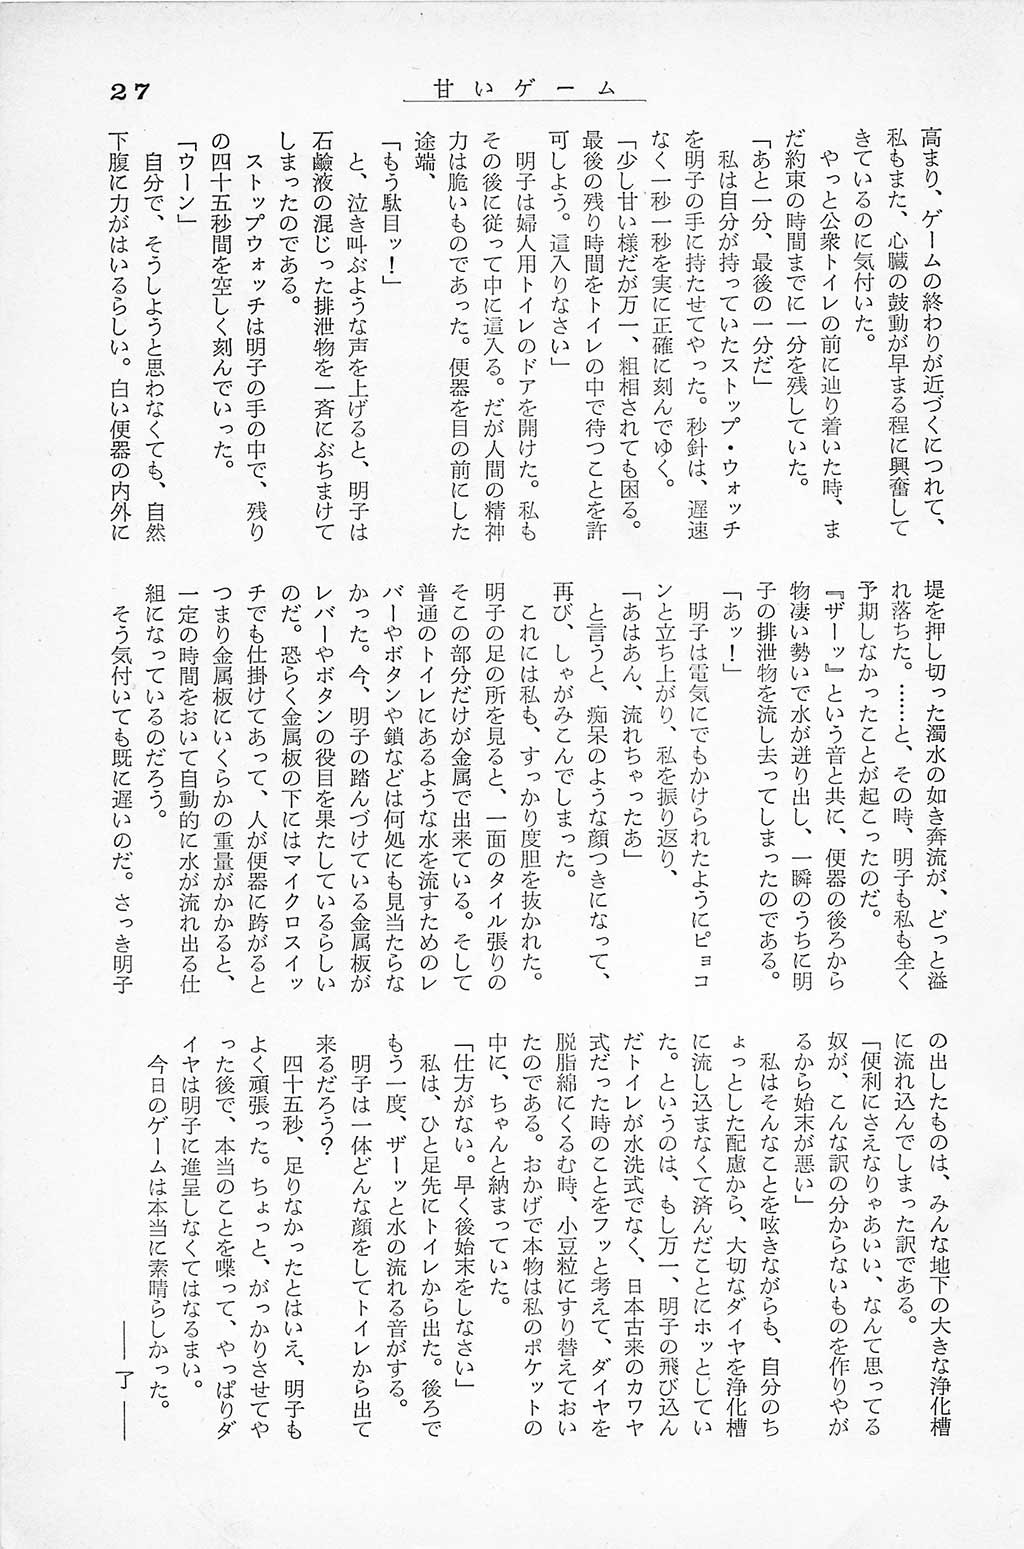 27
甘いゲーム
高まり、ゲームの終わりが近づくにつれて、
私もまた、心臓の鼓動が早まる程に興奮して
きているのに気付いた。
やっと公衆トイレの前に辿り着いた時、ま
だ約束の時間までに一分を残していた。
「あと一分、最後の一分だ」
私は自分が持っていたストップ・ウォッチ
を明子の手に持たせてやった。秒針は、遅速
なく一秒一秒を実に正確に刻んでゆく。
「少し甘い様だが万一、粗相されても困る。
最後の残り時間をトイレの中で待つことを許
可しよう。這入りなさい」
明子は婦人用トイレのドアを開けた。私も
その後に従って中に這入る。だが人間の精神
力は脆いものであった。便器を目の前にした
途端、
「もう駄目ッ！」
と、泣き叫ぶような声を上げると、明子は
石鹼液の混じった排泄物を一斉にぶちまけて
しまったのである。
ストップウォッチは明子の手の中で、残り
の四十五秒間を空しく刻んでいった。
「ウーン」
自分で、そうしようと思わなくても、自然
下腹に力がはいるらしい。白い便器の内外に
堤を押し切った濁水の如き奔流が、どっと溢
れ落ちた。……と、その時、明子も私も全く
予期しなかったことが起こったのだ。
『ザーッ』という音と共に、便器の後ろから
物凄い勢いで水が迸り出し、一瞬のうちに明
子の排泄物を流し去ってしまったのである。
「あッ！」
明子は電気にでもかけられたようにピョコ
ンと立ち上がり、私を振り返り、
「あはあん、流れちゃったあ」
と言うと、痴呆のような顔つきになって、
再び、しゃがみこんでしまった。
これには私も、すっかり度胆を抜かれた。
明子の足の所を見ると、一面のタイル張りの
そこの部分だけが金属で出来ている。そして
普通のトイレにあるような水を流すためのレ
バーやボタンや鎖などは何処にも見当たらな
かった。今、明子の踏んづけている金属板が
レバーやボタンの役目を果たしているらしい
のだ。恐らく金属板の下にはマイクロスイッ
チでも仕掛けてあって、人が便器に跨がると
つまり金属板にいくらかの重量がかかると、
一定の時間をおいて自動的に水が流れ出る仕
組になっているのだろう。
そう気付いても既に遅いのだ。さっき明子
の出したものは、みんな地下の大きな浄化槽
に流れ込んでしまった訳である。
「便利にさえなりゃあいい、なんて思ってる
奴が、こんな訳の分からないものを作りやが
るから始末が悪い」
私はそんなことを呟きながらも、自分のち
ょっとした配慮から、大切なダイヤを浄化槽
に流し込まなくて済んだことにホッとしてい
た。というのは、もし万一、明子の飛び込ん
だトイレが水洗式でなく、日本古来のカワヤ
式だった時のことをフッと考えて、ダイヤを
脱脂綿にくるむ時、小豆粒にすり替えておい
たのである。おかげで本物は私のポケットの
中に、ちゃんと納まっていた。
「仕方がない。早く後始末をしなさい」
私は、ひと足先にトイレから出た。後ろで
もう一度、ザーッと水の流れる音がする。
明子は一体どんな顔をしてトイレから出て
来るだろう？
四十五秒、足りなかったとはいえ、明子も
よく頑張った。ちょっと、がっかりさせてや
った後で、本当のことを喋って、やっぱりダ
イヤは明子に進呈しなくてはなるまい。
今日のゲームは本当に素晴らしかった。
――了――